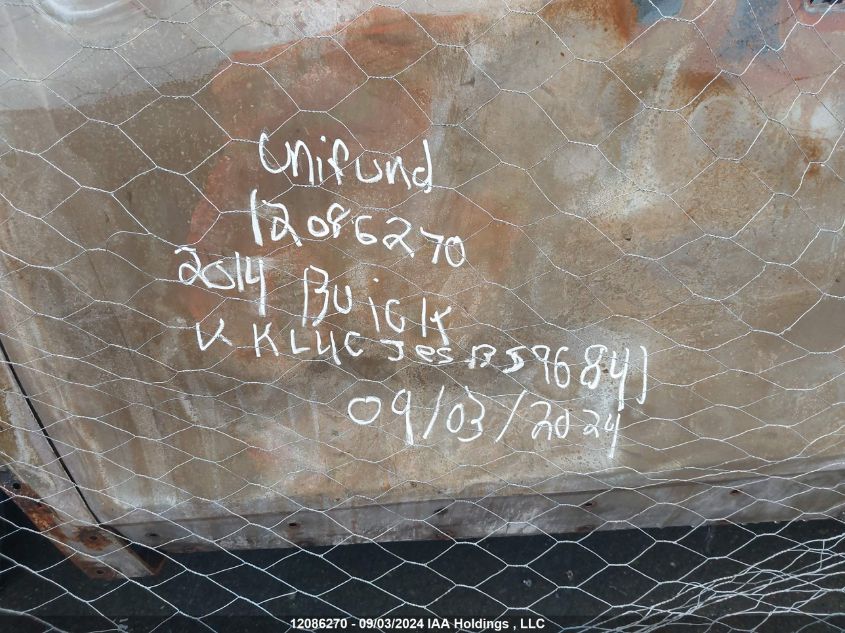 Unifund
12086270
2014 Buick
V KL4CJesB596841
09/03/2024
12086270 - 09/03/2024 IAA Holdings , LLC